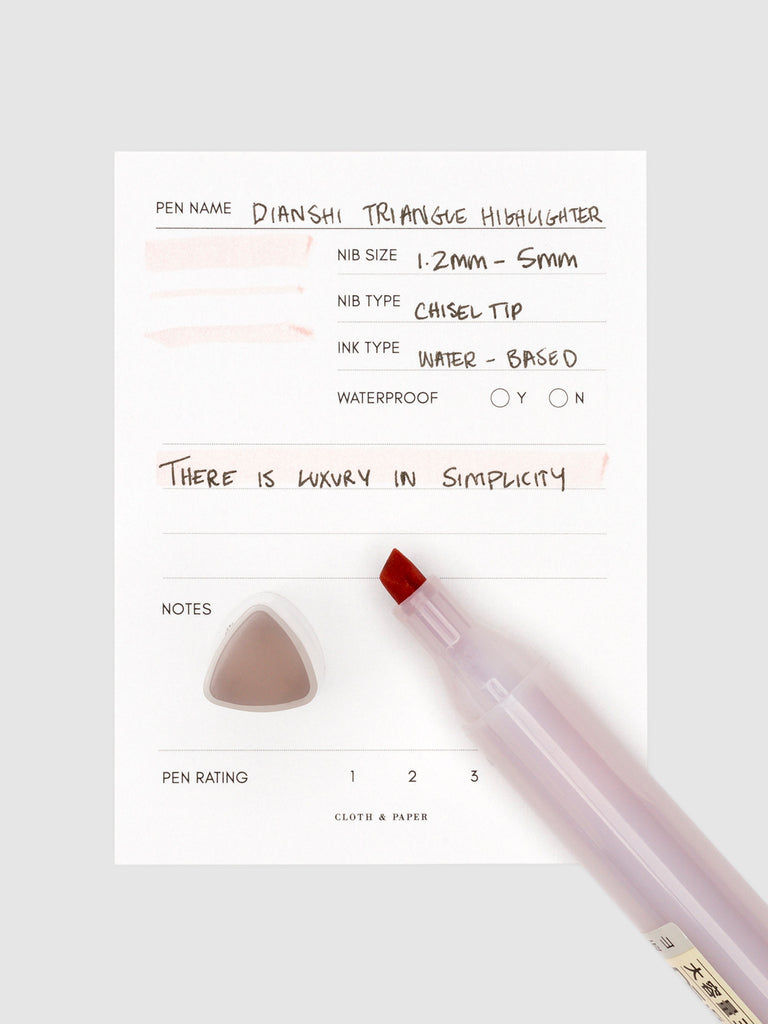 PEN NAME DIANSHI TRIANGLE HIGHLIGHTER
NIB SIZE 1.2mm - 5mm
NIB TYPE CHISEL TIP
INK TYPE WATER - BASED
WATERPROOF Y N
THERE IS LUXURY IN SIMPLICITY
NOTES
PEN RATING 1 2 3
CLOTH & PAPER
大容量